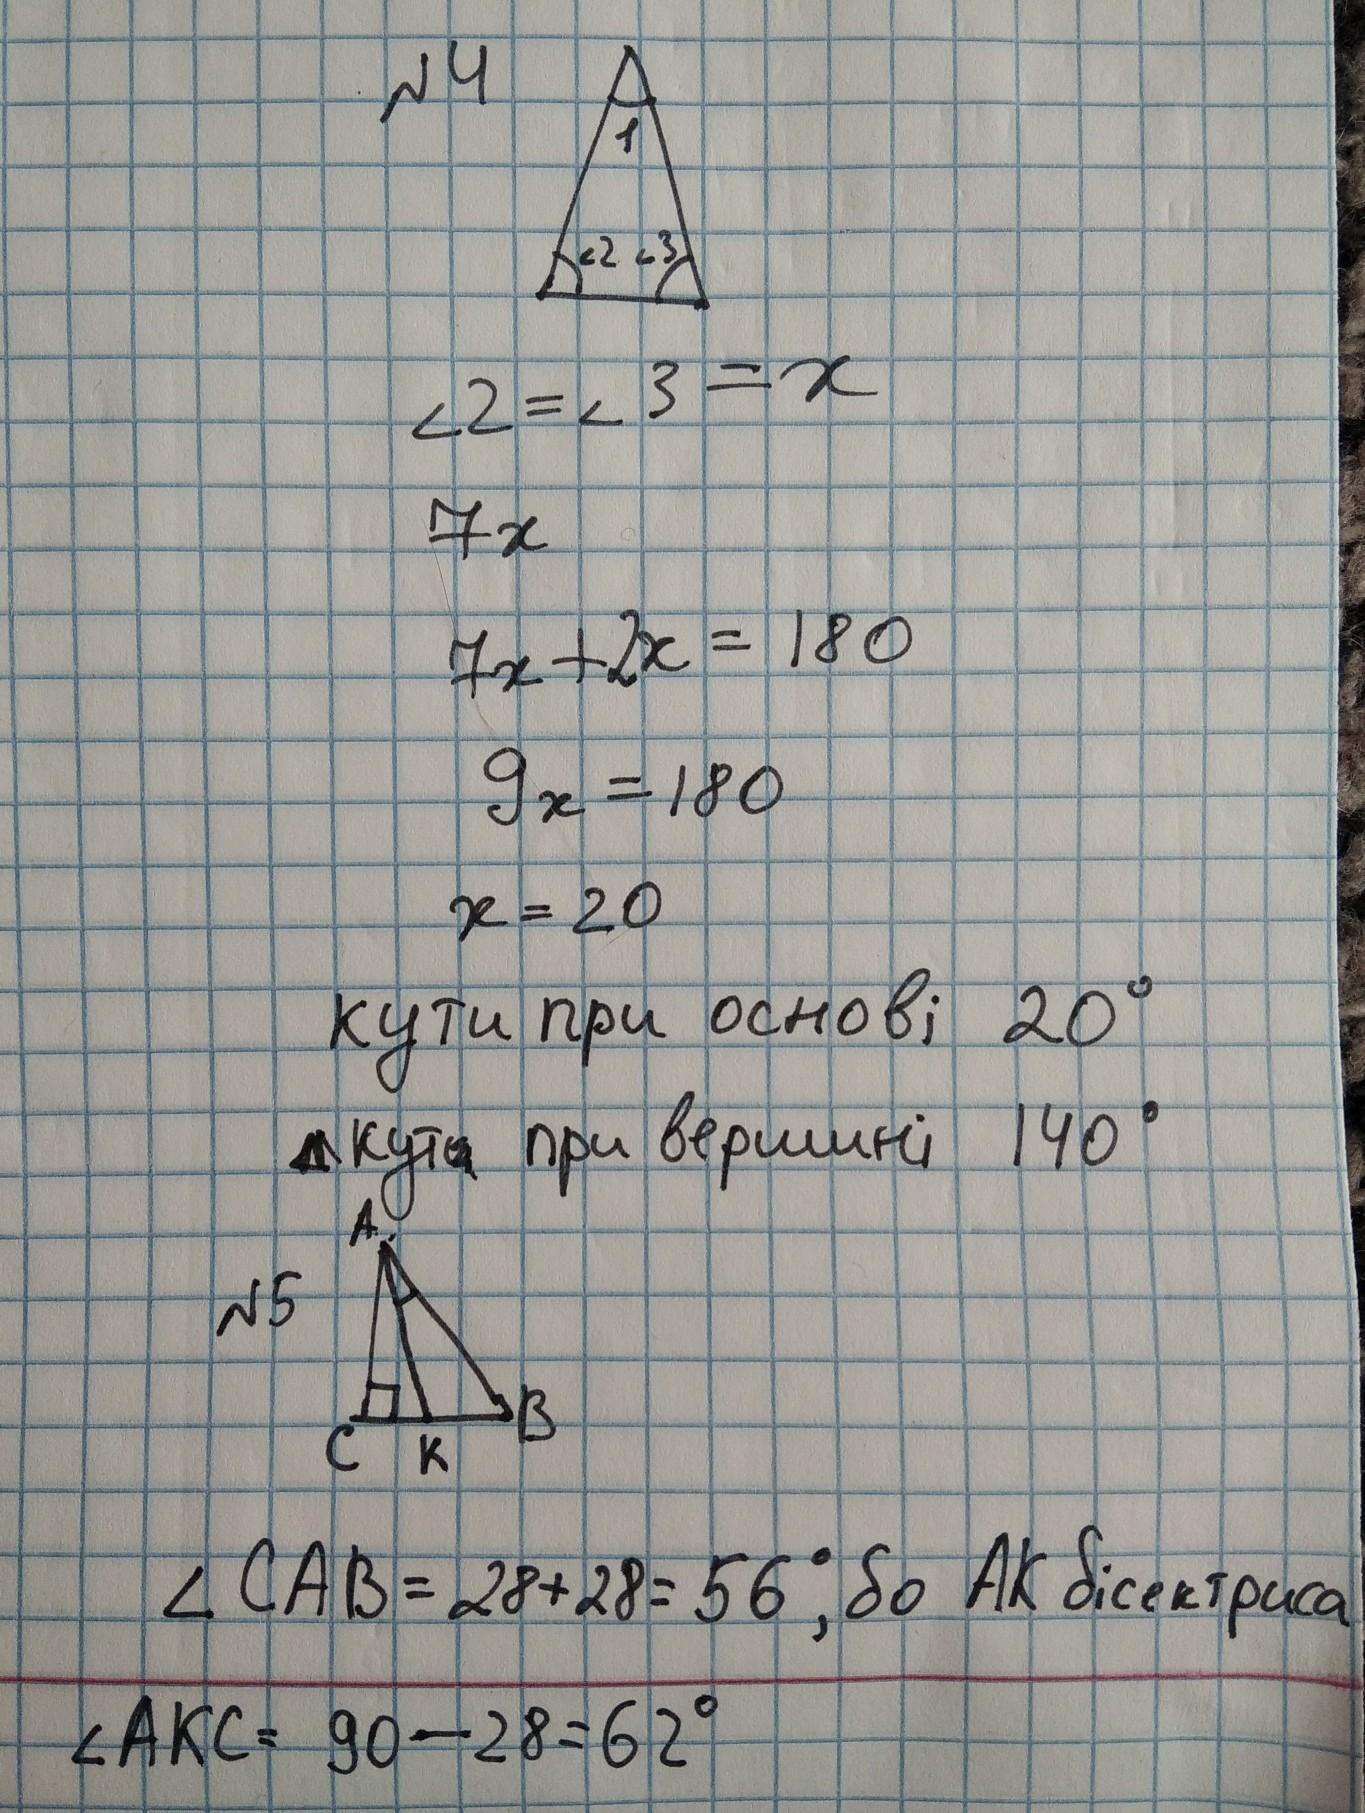 №4
1
∠2 ∠3
∠2 = ∠3 = x
7x
7x + 2x = 180
9x = 180
x = 20
кути при основі 20°
кут при вершині 140°
A
№5
C K B
∠CAB = 28 + 28 = 56°, бо AK бісектриса
∠AKC = 90 - 28 = 62°